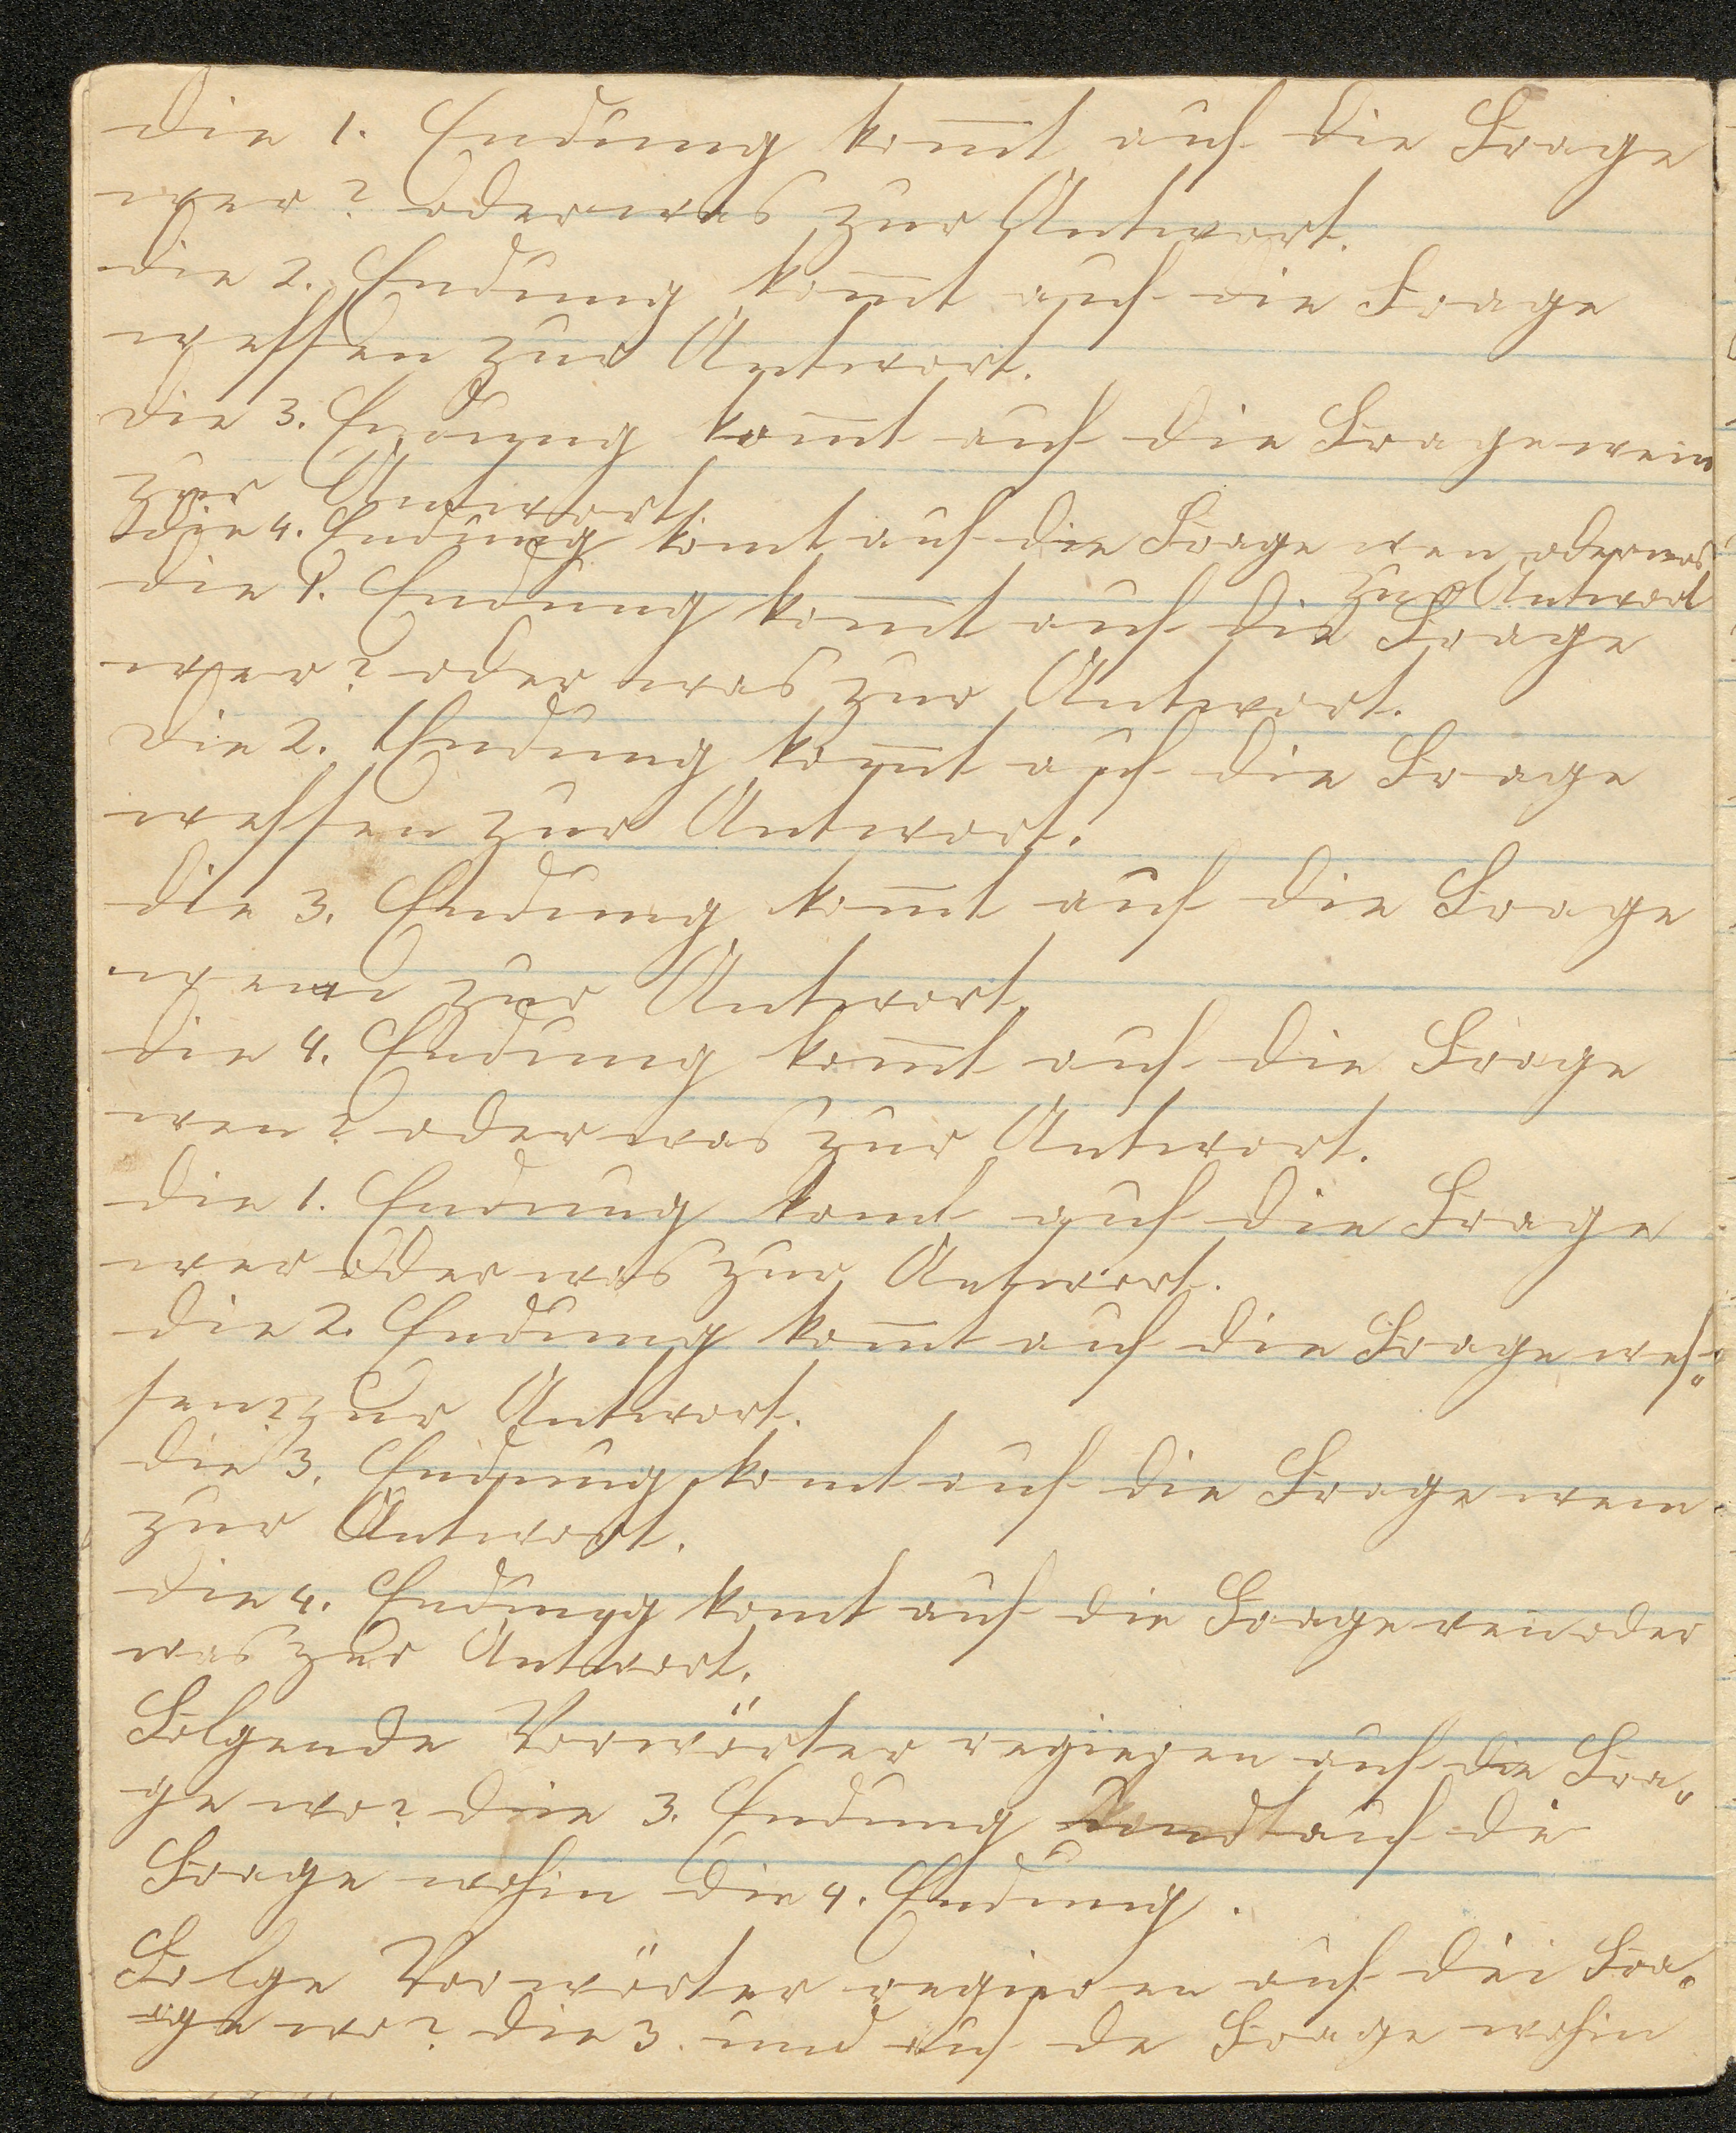 Die 1. Endung kom̅t auf die Frage
wer? oder was zur Antwort.
Die 2. Endung kom̅t auf die Frage
wessen zur Antwort.
Die 3. Endung kom̅t auf die Frage wem
zur Antwort
Die 4. Endung komt auf die Frage wen oder was
zur Antwort
Die 1. Endung kom̅t auf die Frage
wer? oder was zur Antwort.
Die 2. Endung kom̅t auf die Frage
wessen zur Antwort.
Die 3. Endung kom̅t auf die Frage
wem zur Antwort.
Die 4. Endung kom̅t auf die Frage
wen? oder was zur Antwort.
Die 1. Endung komt auf die Frage
wer oder was zur Antwort.
Die 2. Endung kom̅t auf die Frage wes„
sen? zur Antwort.
Die 3. Endung komt auf die Frage wem
zur Antwort.
Die 4. Endung komt auf die Frage wen oder
was zur Antwort.
Folgende Vorwörter regieren auf die Fra„
ge wo? die 3. Endung auf die
Frage wohin die 4. Endung.
Folge Vorwörter regieren auf die Fra„
ge wo? die 3. und auf de Frage wohin